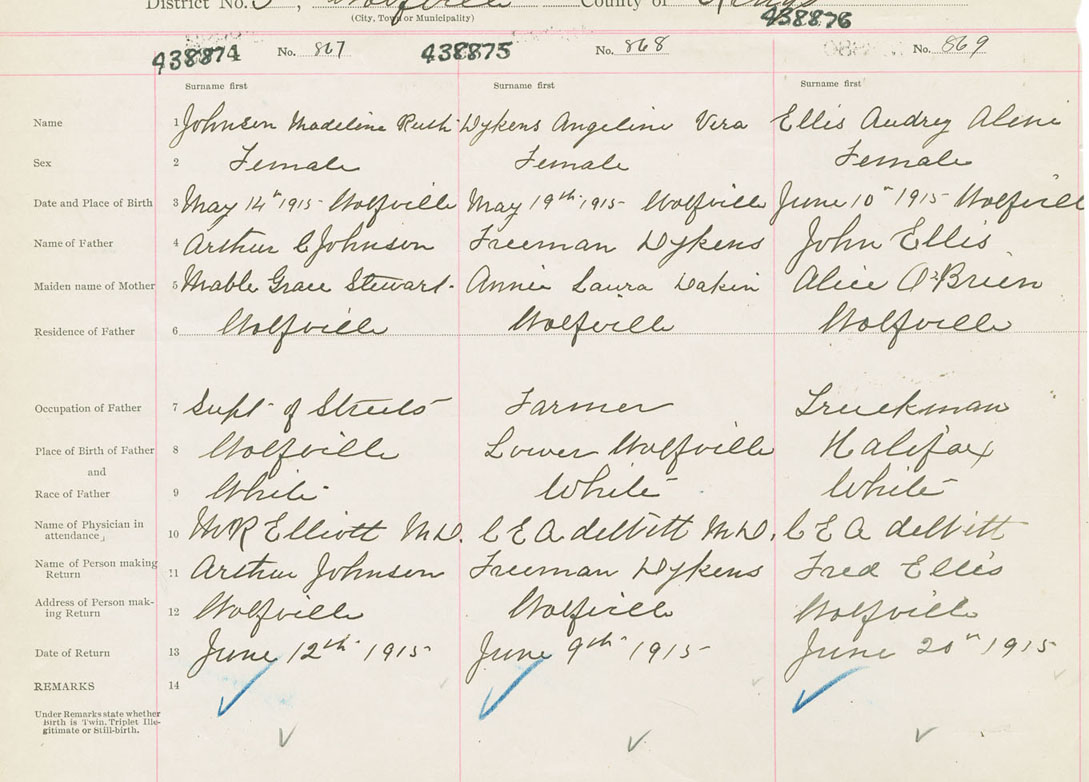 District No. 3, Wolfville County of Kings
(City, Town or Municipality)
438874 No. 867 438875 No. 868 438876 No. 869
Surname first Surname first Surname first
Name 1 Johnson Madeline Ruth Dykens Angeline Vera Ellis Audrey Alene
Sex 2 Female Female Female
Date and Place of Birth 3 May 14th 1915 Wolfville May 19th 1915 Wolfville June 10th 1915 Wolfville
Name of Father 4 Arthur C Johnson Freeman Dykens John Ellis
Maiden name of Mother 5 Mable Grace Stewart. Annie Laura Dakin Alice O'Brien
Residence of Father 6 Wolfville Wolfville Wolfville
Occupation of Father 7 Supt of Streets Farmer Truckman
Place of Birth of Father 8 Wolfville Lower Wolfville Halifax
and
Race of Father 9 White White White
Name of Physician in
attendance 10 M R Elliott M.D. C E A deWitt M.D. C E A deWitt
Name of Person making
Return 11 Arthur Johnson Freeman Dykens Fred Ellis
Address of Person mak-
ing Return 12 Wolfville Wolfville Wolfville
Date of Return 13 June 12th 1915 June 9th 1915 June 20th 1915
REMARKS 14
Under Remarks state whether
Birth is Twin, Triplet Ille-
gitimate or Still-birth.